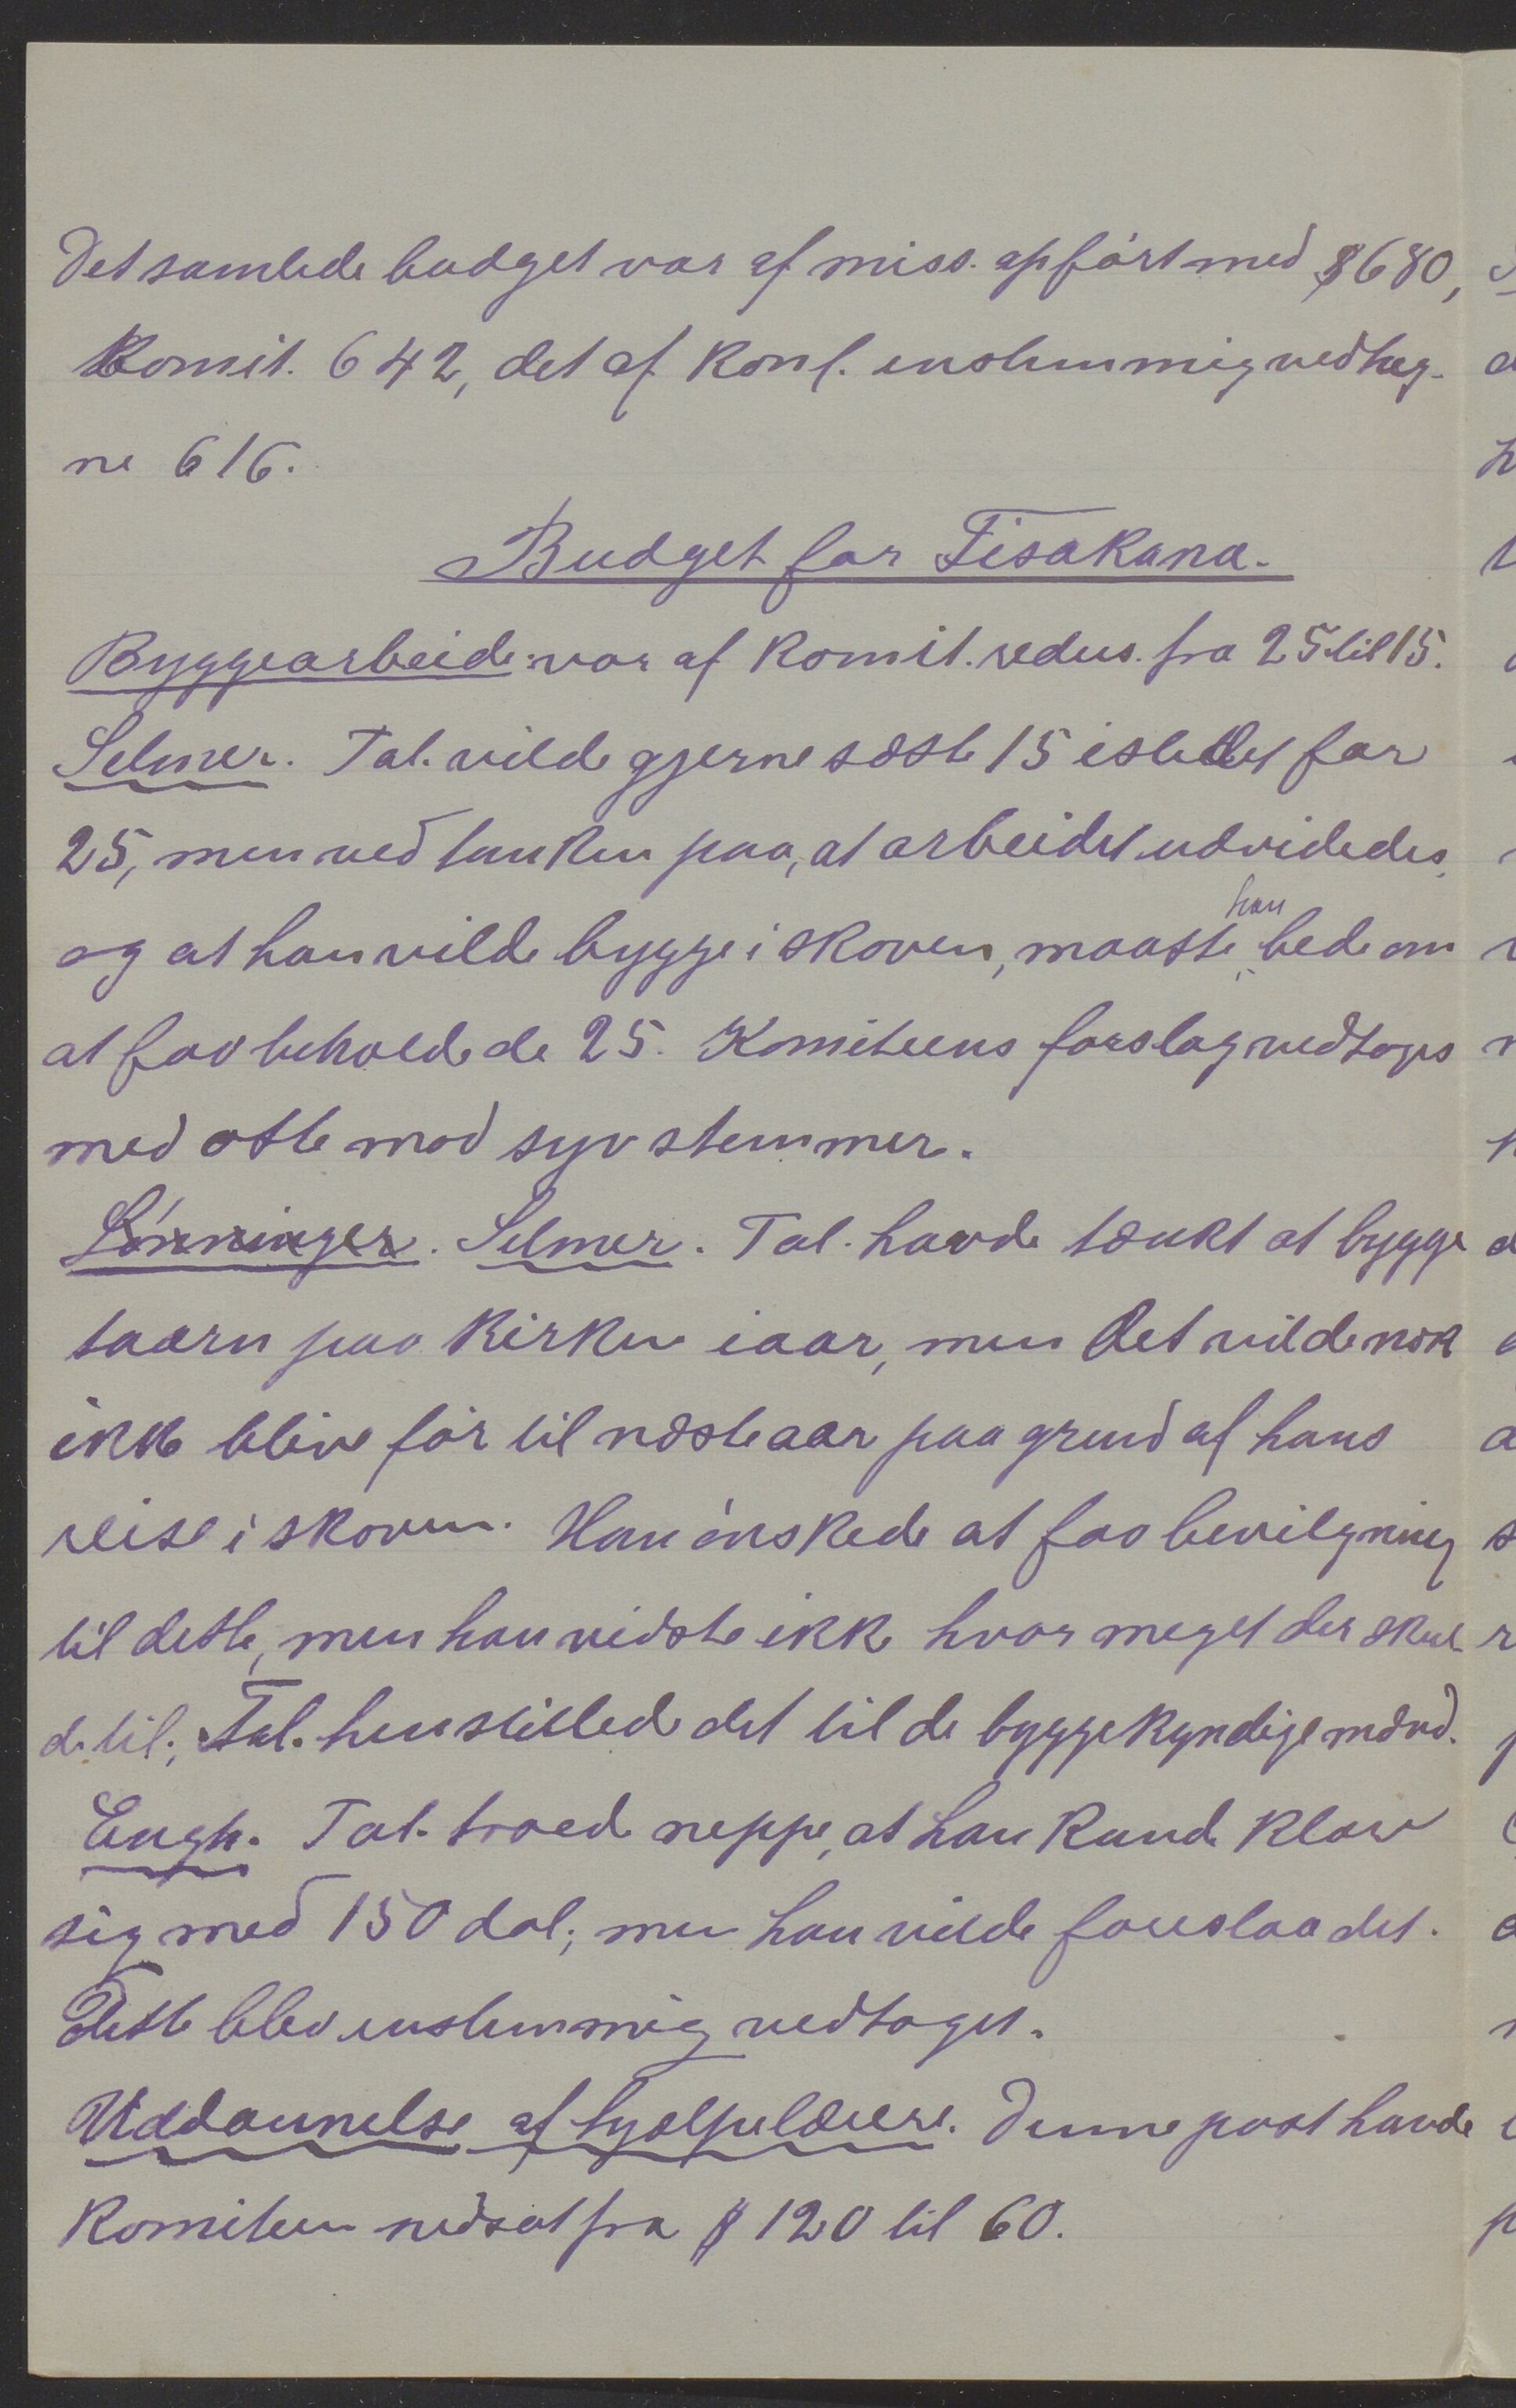 Det samlede budget var af miss. opført med $ 680,
Komit. 642, det af Konf. enstemmig vedteg-
ne 616.
Budget for Fisakana.
Byggearbeide var af Komit. redus. fra 25 til 15.
Selmer. Tal. vilde gjerne sætte 15 istedet for
25, men ved tanken paa, at arbeidet udvidedes,
og at han vilde bygge i skoven, maatte han bede om
at faa beholde de 25. Komiteens forslag vedtoges
med otte mod syv stemmer.
Lønninger. Selmer. Tal. havde tænkt at bygge
taarn paa Kirken iaar, men det vilde nok
ikke blive før til næste aar paa grund af hans
reise i skoven. Han ønskede at faa bevilgning
til dette, men han vidste ikke hvor meget der skul-
de til; Tal. henstillede det til de byggekyndige mænd.
Engh. Tal. troede neppe, at han kunde klare
sig med 150 dol; men han vilde foreslaa det.
Dette blev enstemmig vedtaget.
Uddannelse af hjælpelærere. Denne post havde
Komiteen nedsat fra $ 120 til 60.